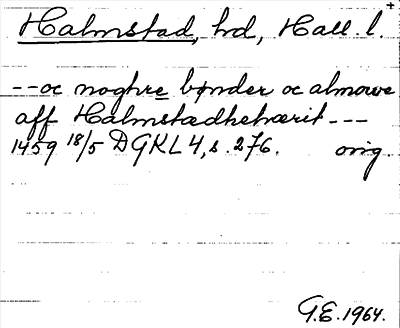 Halmstad, hd, Hall. l. +
-- oc noghre bønder oc almowe
aff Halmstædhehærit ---
1459 18/5 DGKL 4, s. 276. orig
G.E. 1964.